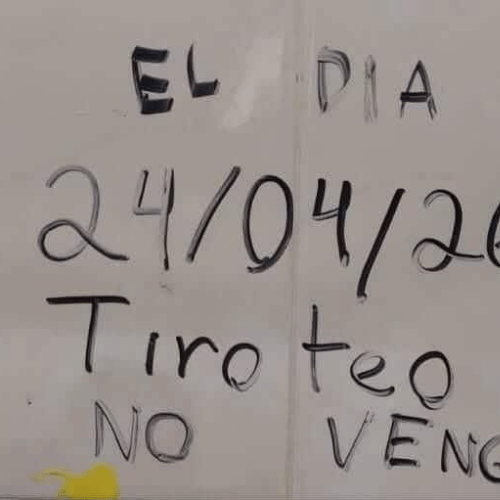 EL DIA
24/04/26
Tiroteo
NO VENG